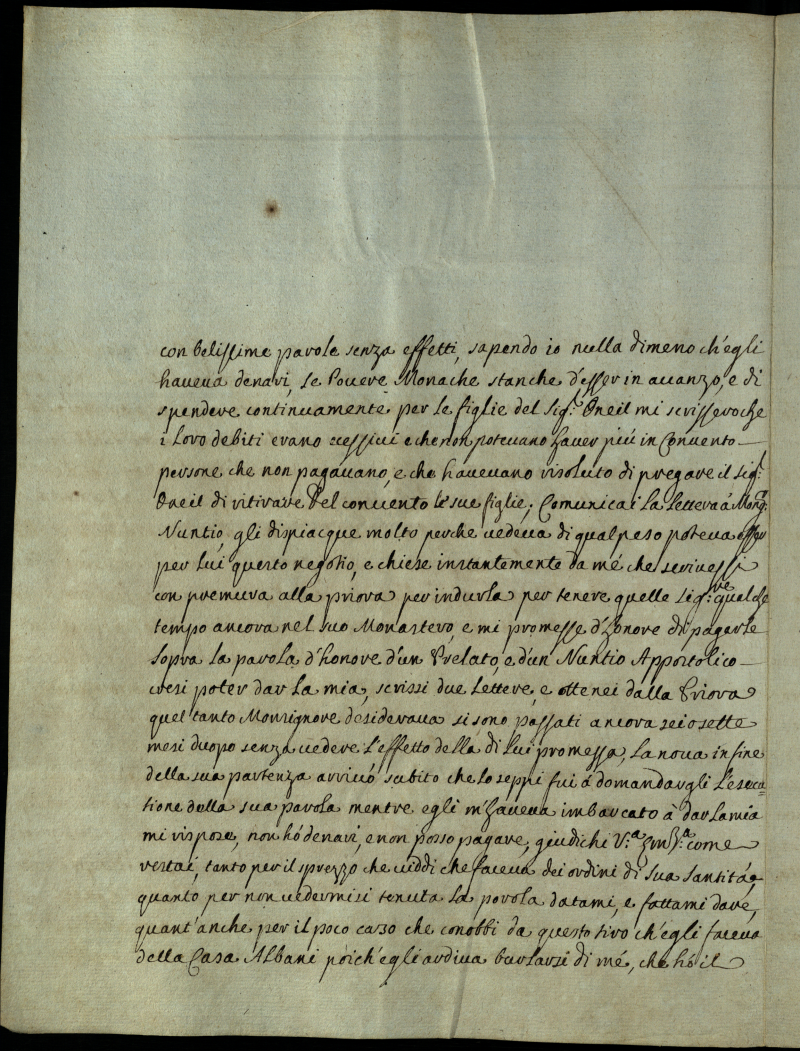 con belissime parole senza effetti, sapendo io nulla dimeno ch'egli
haueua denari, le Pouere Monache stanche d'esser in auanzo, e di
spendere continuamente per le figlie del Sig.r Oneil mi scrissero che
i loro debiti erano eccessiui e che non poteuano hauer più in Conuento
persone che non pagauano, e che haueuano risoluto di pregare il Sig.r
Oneil di ritirare del conuento le sue figlie, Comunicai la lettera á Mong.r
Nuntio, gli dispiacque molto perche uedeua di qual peso poteua esser
per lui questo negotio, e chiese instantemente da mé che scriuessi
con premura alla priora per indurla per tenere quelle Sig.re qualche
tempo ancora nel suo Monastero, e mi promesse d'honore di pagarle
sopra la parola d'honore d'un Prelato, e d'un Nuntio Appostolico
cresi poter dar la mia, scrissi due lettere, e ottenei dalla Priora
quel tanto Monsignore desideraua si sono passati ancora sei o sette
mesi duopo senza uedere l'effetto della di lui promessa, la noua in fine
della sua partenza arriuó subito che lo seppi fui á domandargli l'esecu=
tione della sua parola mentre egli m'haueua imbarcato à dar la mia
mi rispose, non hó denari, e non posso pagare, giudichi V.a Em.za come
restai, tanto per il sprezzo che uiddi che faceua dei ordini di sua Santitá, e
quanto per non uedermi si tenuta la parola datami, e fattami dare,
quant'anche per il poco caso che conobbi da questo tiro ch'egli faceua
della Casa Albani poich'egli ardiua burlarsi di mé, che hó il